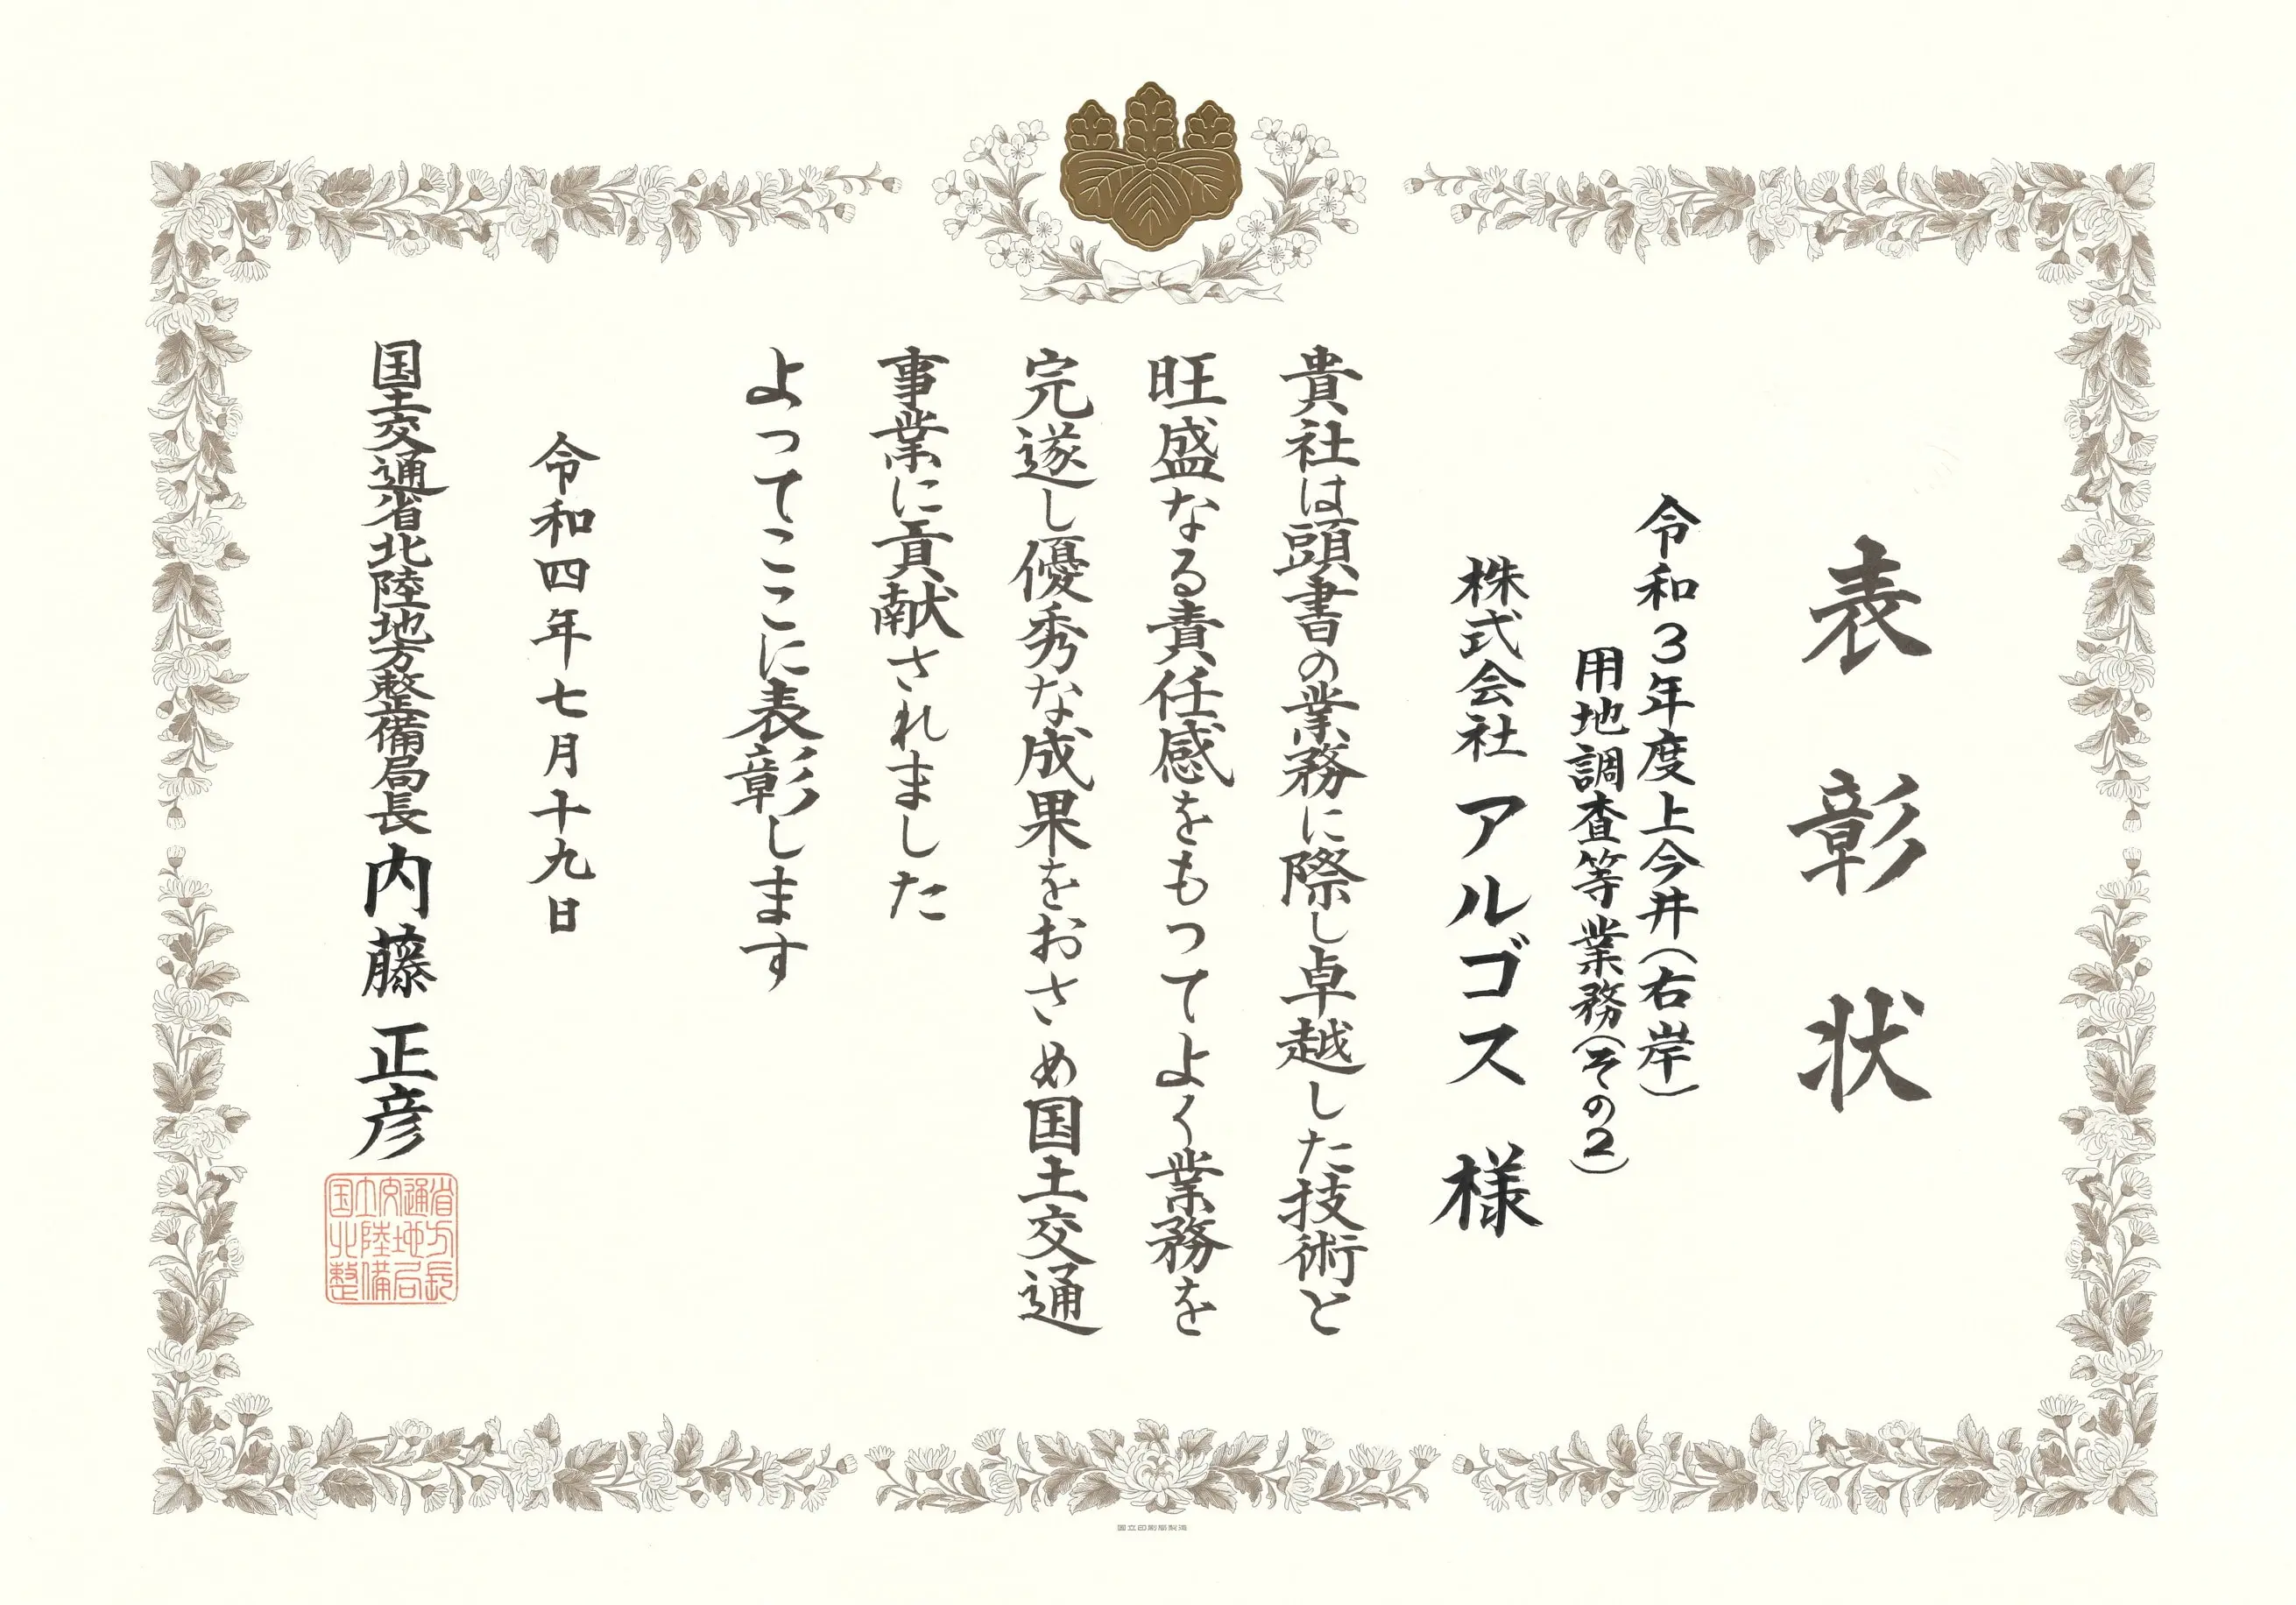 表彰状
令和3年度上今井(右岸)
用地調査等業務(その2)
株式会社アルゴス 様
貴社は頭書の業務に際し卓越した技術と
旺盛なる責任感をもつてよく業務を
完遂し優秀な成果をおさめ国土交通
事業に貢献されました
よってここに表彰します
令和四年七月十九日
国土交通省北陸地方整備局長 内藤 正彦
国土交通省
北陸地方
整備局長
国立印刷局製造